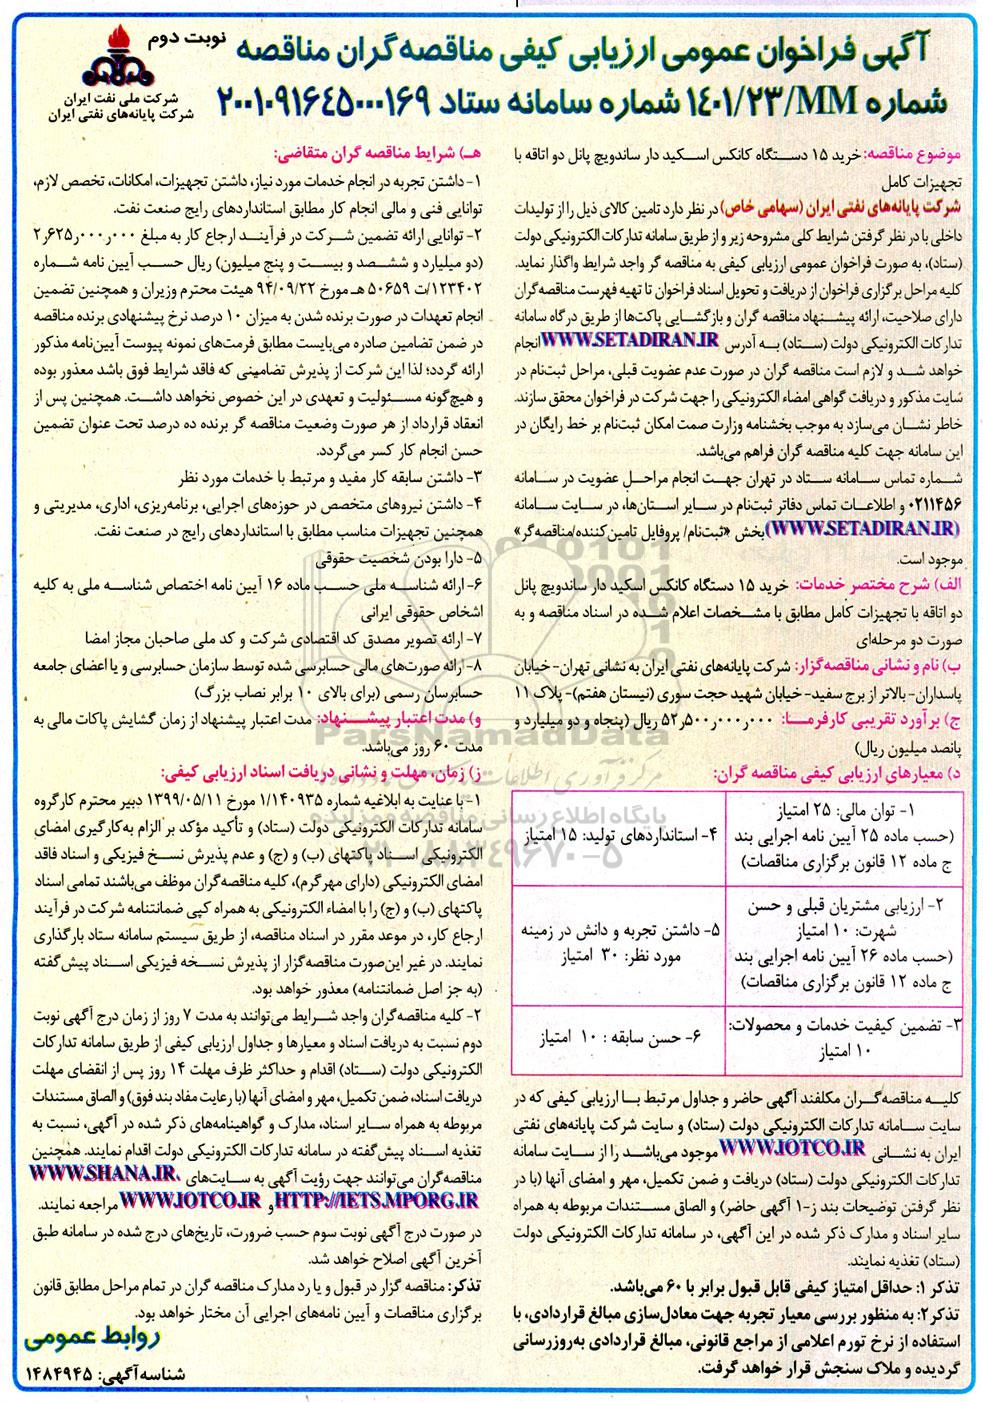 نوبت دوم
شرکت ملی نفت ایران
شرکت پایانه‌های نفتی ایران
آگهی فراخوان عمومی ارزیابی کیفی مناقصه‌گران مناقصه
شماره ۱۴۰۱/۲۳/MM شماره سامانه ستاد ۲۰۰۱۰۹۱۶۴۵۰۰۰۱۶۹
موضوع مناقصه: خرید ۱۵ دستگاه کانکس اسکید دار ساندویچ پانل دو اتاقه با
تجهیزات کامل
شرکت پایانه‌های نفتی ایران (سهامی خاص) در نظر دارد تامین کالای ذیل را از تولیدات
داخلی با در نظر گرفتن شرایط کلی مشروحه زیر و از طریق سامانه تدارکات الکترونیکی دولت
(ستاد)، به صورت فراخوان عمومی ارزیابی کیفی به مناقصه گر واجد شرایط واگذار نماید.
کلیه مراحل برگزاری فراخوان از دریافت و تحویل اسناد فراخوان تا تهیه فهرست مناقصه‌گران
دارای صلاحیت، ارائه پیشنهاد مناقصه گران و بازگشایی پاکت‌ها از طریق درگاه سامانه
تدارکات الکترونیکی دولت (ستاد) به آدرس WWW.SETADIRAN.IR انجام
خواهد شد و لازم است مناقصه گران در صورت عدم عضویت قبلی، مراحل ثبت‌نام در
سایت مذکور و دریافت گواهی امضاء الکترونیکی را جهت شرکت در فراخوان محقق سازند.
خاطر نشان می‌سازد به موجب بخشنامه وزارت صمت امکان ثبت‌نام بر خط رایگان در
این سامانه جهت کلیه مناقصه گران فراهم می‌باشد.
شماره تماس سامانه ستاد در تهران جهت انجام مراحل عضویت در سامانه
۰۲۱۱۴۵۶ و اطلاعات تماس دفاتر ثبت‌نام در سایر استان‌ها، در سایت سامانه
(WWW.SETADIRAN.IR) بخش «ثبت‌نام/ پروفایل تامین‌کننده/مناقصه‌گر»
موجود است.
الف) شرح مختصر خدمات: خرید ۱۵ دستگاه کانکس اسکید دار ساندویچ پانل
دو اتاقه با تجهیزات کامل مطابق با مشخصات اعلام شده در اسناد مناقصه و به
صورت دو مرحله‌ای
ب) نام و نشانی مناقصه‌گزار: شرکت پایانه‌های نفتی ایران به نشانی تهران- خیابان
پاسداران- بالاتر از برج سفید- خیابان شهید حجت سوری (نیستان هفتم)- پلاک ۱۱
ج) برآورد تقریبی کارفرما: ۵۲٫۵۰۰٫۰۰۰٫۰۰۰ ریال (پنجاه و دو میلیارد و
پانصد میلیون ریال)
د) معیارهای ارزیابی کیفی مناقصه گران:
۱- توان مالی: ۲۵ امتیاز
(حسب ماده ۲۵ آیین نامه اجرایی بند
ج ماده ۱۲ قانون برگزاری مناقصات)
۴- استانداردهای تولید: ۱۵ امتیاز
۲- ارزیابی مشتریان قبلی و حسن
شهرت: ۱۰ امتیاز
(حسب ماده ۲۶ آیین نامه اجرایی بند
ج ماده ۱۲ قانون برگزاری مناقصات)
۵- داشتن تجربه و دانش در زمینه
مورد نظر: ۳۰ امتیاز
۳- تضمین کیفیت خدمات و محصولات:
۱۰ امتیاز
۶- حسن سابقه : ۱۰ امتیاز
کلیه مناقصه‌گران مکلفند آگهی حاضر و جداول مرتبط با ارزیابی کیفی که در
سایت سامانه تدارکات الکترونیکی دولت (ستاد) و سایت شرکت پایانه‌های نفتی
ایران به نشانی WWW.IOTCO.IR موجود می‌باشد را از سایت سامانه
تدارکات الکترونیکی دولت (ستاد) دریافت و ضمن تکمیل، مهر و امضای آنها (با در
نظر گرفتن توضیحات بند ز-۱ آگهی حاضر) و الصاق مستندات مربوطه به همراه
سایر اسناد و مدارک ذکر شده در این آگهی، در سامانه تدارکات الکترونیکی دولت
(ستاد) تغذیه نمایند.
تذکر ۱: حداقل امتیاز کیفی قابل قبول برابر با ۶۰ می‌باشد.
تذکر ۲: به منظور بررسی معیار تجربه جهت معادل‌سازی مبالغ قراردادی، با
استفاده از نرخ تورم اعلامی از مراجع قانونی، مبالغ قراردادی به‌روزرسانی
گردیده و ملاک سنجش قرار خواهد گرفت.
هـ) شرایط مناقصه گران متقاضی:
۱- داشتن تجربه در انجام خدمات مورد نیاز، داشتن تجهیزات، امکانات، تخصص لازم،
توانایی فنی و مالی انجام کار مطابق استانداردهای رایج صنعت نفت.
۲- توانایی ارائه تضمین شرکت در فرآیند ارجاع کار به مبلغ ۲٫۶۲۵٫۰۰۰٫۰۰۰
(دو میلیارد و ششصد و بیست و پنج میلیون) ریال حسب آیین نامه شماره
۱۲۳۴۰۲/ت ۵۰۶۵۹ هـ مورخ ۹۴/۰۹/۲۲ هیئت محترم وزیران و همچنین تضمین
انجام تعهدات در صورت برنده شدن به میزان ۱۰ درصد نرخ پیشنهادی برنده مناقصه
در ضمن تضامین صادره می‌بایست مطابق فرمت‌های نمونه پیوست آیین‌نامه مذکور
ارائه گردد؛ لذا این شرکت از پذیرش تضامینی که فاقد شرایط فوق باشد معذور بوده
و هیچ‌گونه مسئولیت و تعهدی در این خصوص نخواهد داشت. همچنین پس از
انعقاد قرارداد از هر صورت وضعیت مناقصه گر برنده ده درصد تحت عنوان تضمین
حسن انجام کار کسر می‌گردد.
۳- داشتن سابقه کار مفید و مرتبط با خدمات مورد نظر
۴- داشتن نیروهای متخصص در حوزه‌های اجرایی، برنامه‌ریزی، اداری، مدیریتی و
همچنین تجهیزات مناسب مطابق با استانداردهای رایج در صنعت نفت.
۵- دارا بودن شخصیت حقوقی
۶- ارائه شناسه ملی حسب ماده ۱۶ آیین نامه اختصاص شناسه ملی به کلیه
اشخاص حقوقی ایرانی
۷- ارائه تصویر مصدق کد اقتصادی شرکت و کد ملی صاحبان مجاز امضا
۸- ارائه صورت‌های مالی حسابرسی شده توسط سازمان حسابرسی و یا اعضای جامعه
حسابرسان رسمی (برای بالای ۱۰ برابر نصاب بزرگ)
و) مدت اعتبار پیشنهاد: مدت اعتبار پیشنهاد از زمان گشایش پاکات مالی به
مدت ۶۰ روز می‌باشد.
ز) زمان، مهلت و نشانی دریافت اسناد ارزیابی کیفی:
۱- با عنایت به ابلاغیه شماره ۱/۱۴۰۹۳۵ مورخ ۱۳۹۹/۰۵/۱۱ دبیر محترم کارگروه
سامانه تدارکات الکترونیکی دولت (ستاد) و تأکید مؤکد بر الزام به‌کارگیری امضای
الکترونیکی اسناد پاکتهای (ب) و (ج) و عدم پذیرش نسخ فیزیکی و اسناد فاقد
امضای الکترونیکی (دارای مهر گرم)، کلیه مناقصه‌گران موظف می‌باشند تمامی اسناد
پاکتهای (ب) و (ج) را با امضاء الکترونیکی به همراه کپی ضمانتنامه شرکت در فرآیند
ارجاع کار، در موعد مقرر در اسناد مناقصه، از طریق سیستم سامانه ستاد بارگذاری
نمایند. در غیر این‌صورت مناقصه‌گزار از پذیرش نسخه فیزیکی اسناد پیش‌گفته
(به جز اصل ضمانتنامه) معذور خواهد بود.
۲- کلیه مناقصه‌گران واجد شرایط می‌توانند به مدت ۷ روز از زمان درج آگهی نوبت
دوم نسبت به دریافت اسناد و معیارها و جداول ارزیابی کیفی از طریق سامانه تدارکات
الکترونیکی دولت (ستاد) اقدام و حداکثر ظرف مهلت ۱۴ روز پس از انقضای مهلت
دریافت اسناد، ضمن تکمیل، مهر و امضای آنها (با رعایت مفاد بند فوق) و الصاق مستندات
مربوطه به همراه سایر اسناد، مدارک و گواهینامه‌های ذکر شده در آگهی، نسبت به
تغذیه اسناد پیش‌گفته در سامانه تدارکات الکترونیکی دولت اقدام نمایند. همچنین
مناقصه‌گران می‌توانند جهت رؤیت آگهی به سایت‌های WWW.SHANA.IR،
HTTP://IETS.MPORG.IR و WWW.IOTCO.IR مراجعه نمایند.
در صورت درج آگهی نوبت سوم حسب ضرورت، تاریخ‌های درج شده در سامانه طبق
آخرین آگهی اصلاح خواهد شد.
تذکر: مناقصه گزار در قبول و یا رد مدارک مناقصه گران در تمام مراحل مطابق قانون
برگزاری مناقصات و آیین نامه‌های اجرایی آن مختار خواهد بود.
روابط عمومی
شناسه آگهی: ۱۴۸۴۹۴۵
ParsNamadData
پایگاه اطلاع رسانی مناقصه و مزایده
۰۲۱-۸۸۳۴۹۶۷۰-۵